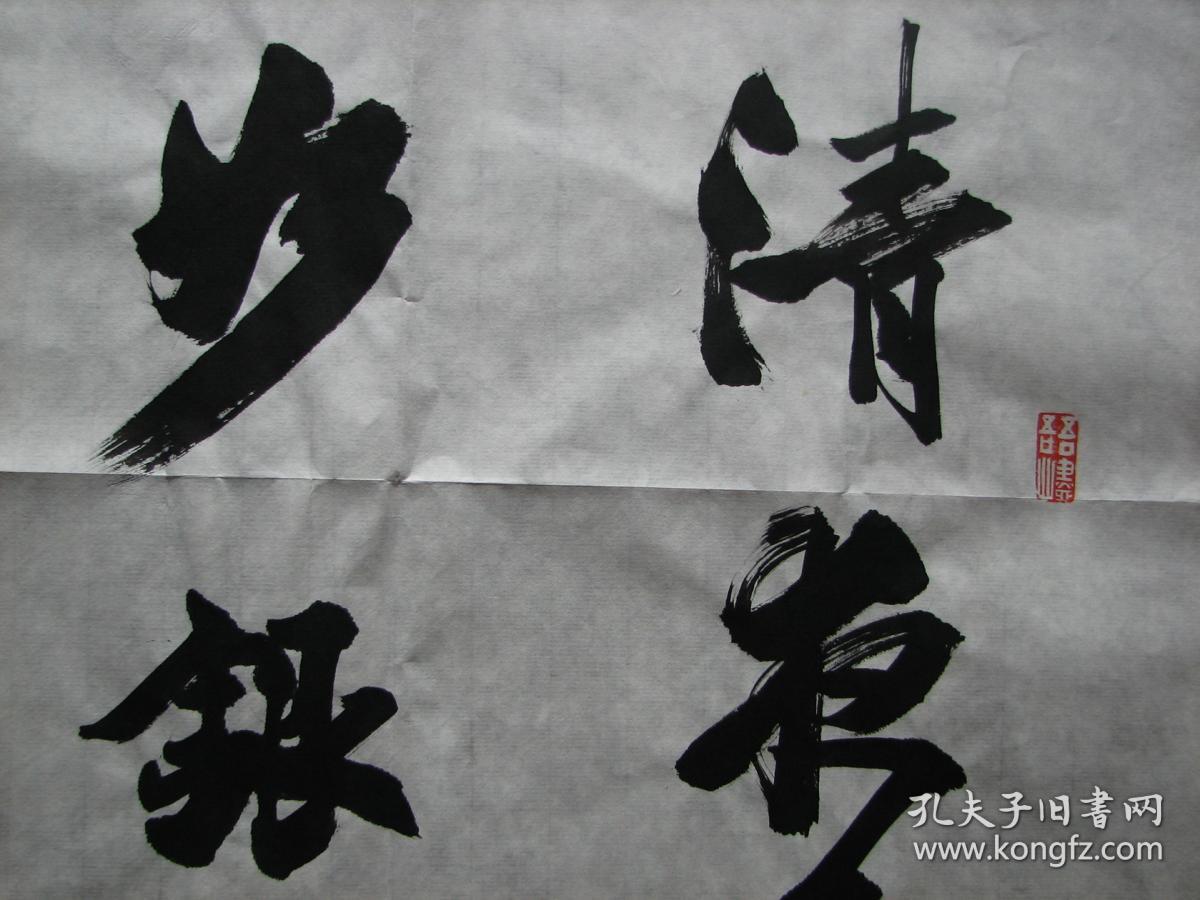 清夜
步銀
孔夫子旧書网
www.kongfz.com